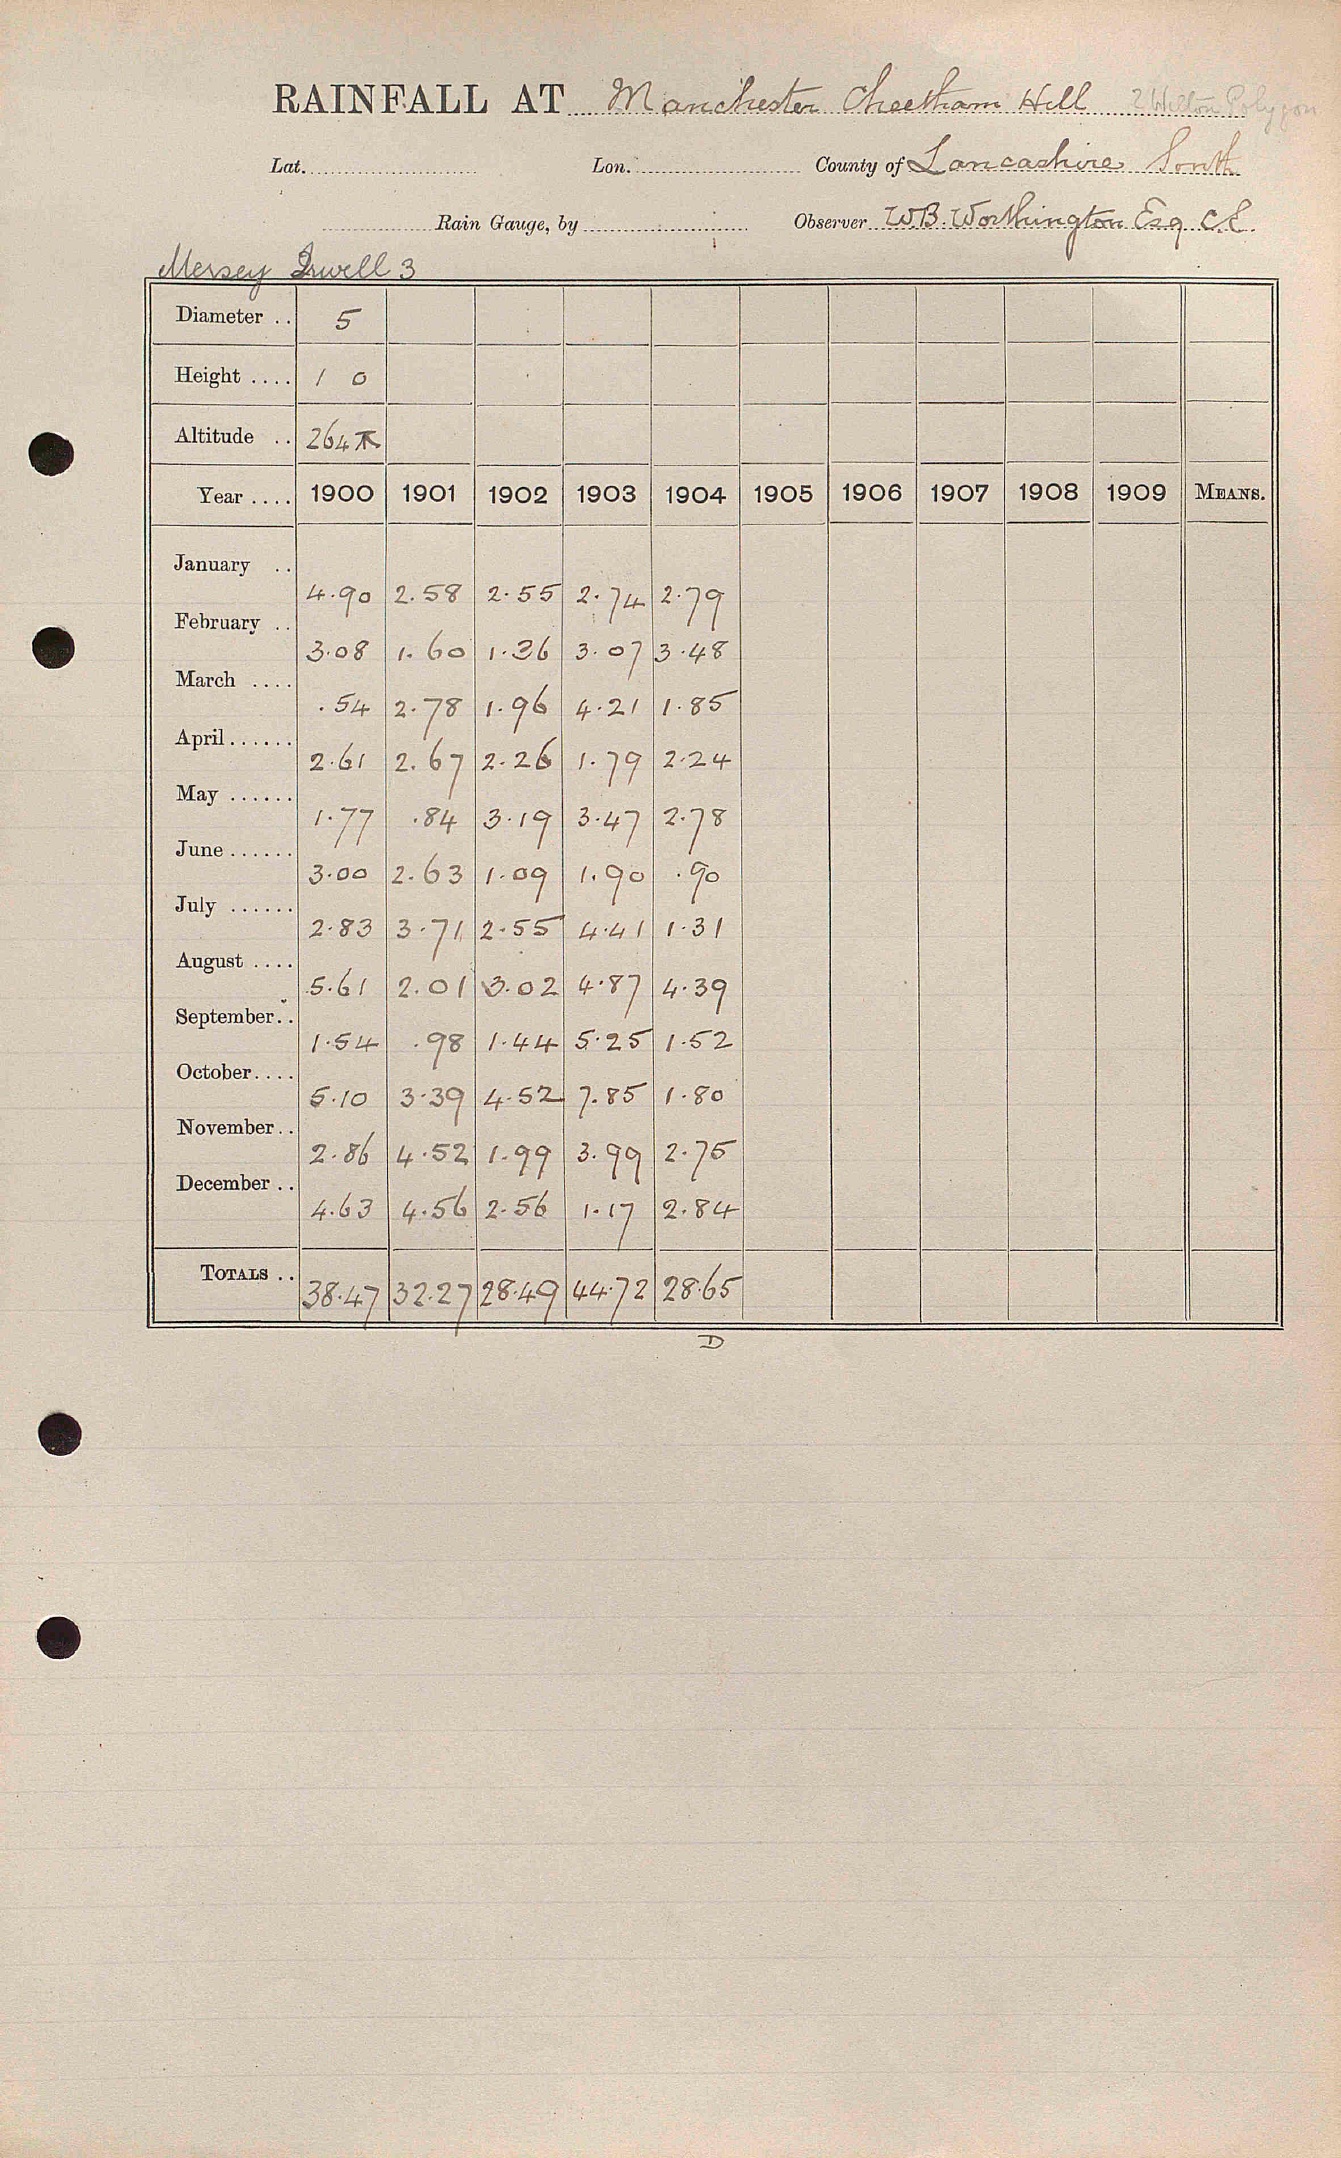 RAINFALL AT Manchester Cheetham Hill 2 Hilton Polygon
Lat. Lon. County of Lancashire South
Rain Gauge, by Observer W.B. Worthington Esq C.E.
Mersey Irwell 3
Diameter .. 5
Height .... 1 0
Altitude .. 264
Year .... 1900 1901 1902 1903 1904 1905 1906 1907 1908 1909 MEANS.
January .. 4.90 2.58 2.55 2.74 2.79
February .. 3.08 1.60 1.36 3.07 3.48
March .... .54 2.78 1.96 4.21 1.85
April...... 2.61 2.67 2.26 1.79 2.24
May ...... 1.77 .84 3.19 3.47 2.78
June ...... 3.00 2.63 1.09 1.90 .90
July ...... 2.83 3.71 2.55 4.41 1.31
August .... 5.61 2.01 3.02 4.87 4.39
September.. 1.54 .98 1.44 5.25 1.52
October.... 5.10 3.39 4.52 7.85 1.80
November.. 2.86 4.52 1.99 3.99 2.75
December .. 4.63 4.56 2.56 1.17 2.84
TOTALS .. 38.47 32.27 28.49 44.72 28.65
D